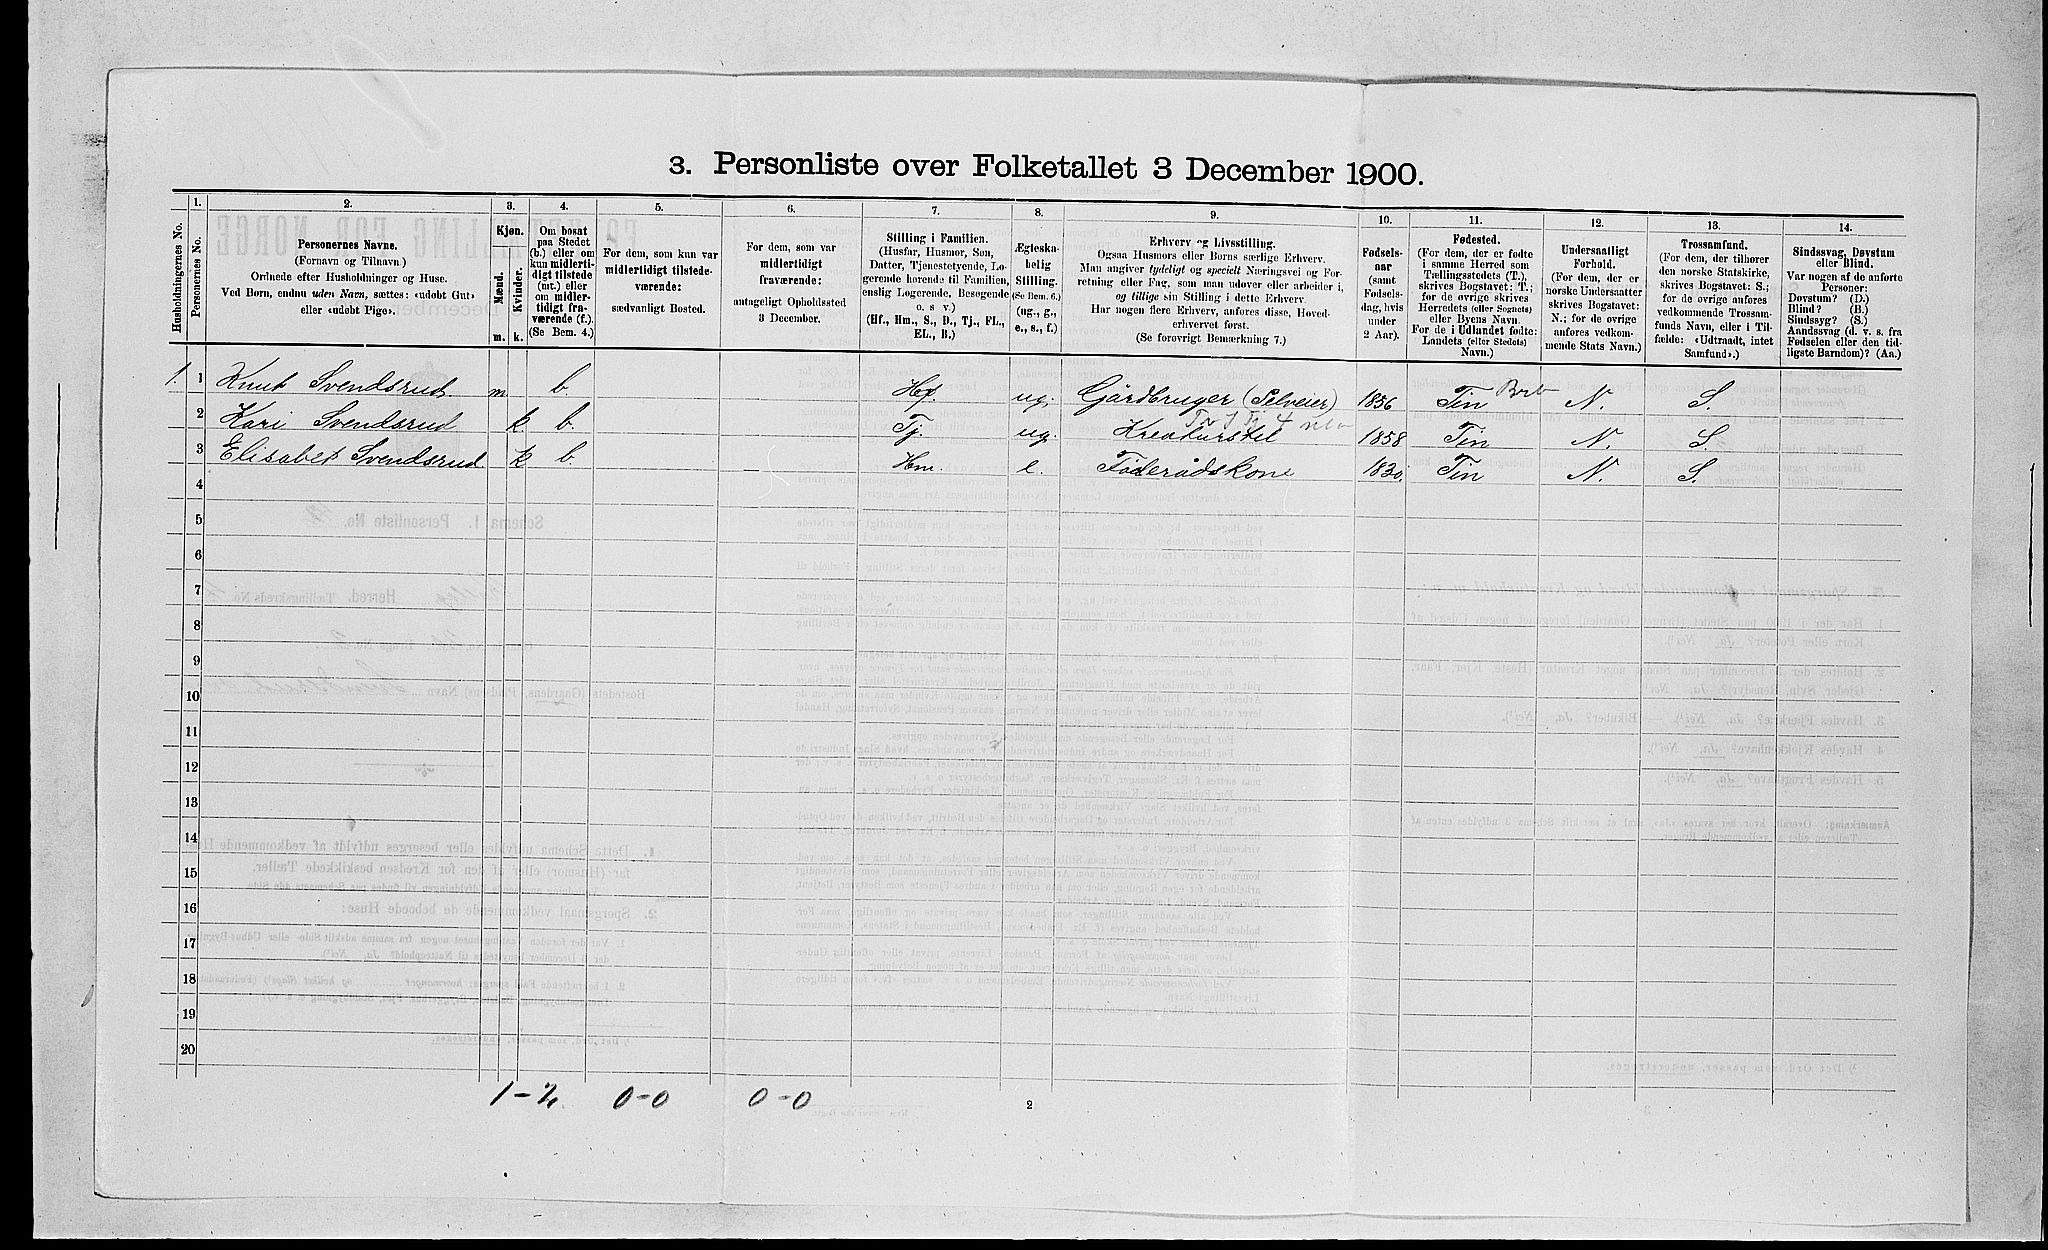 3. Personliste over Folketallet 3 December 1900.
Husholdningernes No.
1.
Personernes No.
2.
Personernes Navne.
(Fornavn og Tilnavn.)
Ordnede efter Husholdninger og Huse.
Ved Børn, endnu uden Navn, sættes: «udøbt Gut»
eller «udøbt Pige».
3.
Kjøn.
Mænd.
Kvinder.
m.
k.
4.
Om bosat
paa Stedet
(b.) eller om
kun midlerti-
digt tilstede
(mt.) eller
om midler-
tidigt fra-
værende (f.)
(Se Bem. 4.)
5.
For dem, som kun var
midlertidigt tilstede-
værende:
sædvanligt Bosted.
6.
For dem, som var
midlertidigt
fraværende:
antageligt Opholdssted
3 December.
7.
Stilling i Familien.
(Husfar, Husmor, Søn,
Datter, Tjenestetyende, Lo-
gerende hørende til Familien,
enslig Logerende, Besøgende
o. s. v.)
(Hf., Hm., S., D., Tj., FL.,
EL., B.)
8.
Ægteska-
belig
Stilling.
(Se Bem. 6.)
(ug., g.,
e., s., f.)
9.
Erhverv og Livsstilling.
Ogsaa Husmors eller Børns særlige Erhverv.
Man angiver tydeligt og specielt Næringsvei og For-
retning eller Fag, som man udøver eller arbeider i,
og tillige sin Stilling i dette Erhverv.
Har nogen flere Erhverv, anføres disse, Hoved-
erhvervet først.
(Se forøvrigt Bemærkning 7.)
10.
Fødsels-
aar
(samt
Fødsels-
dag, hvis
under
2 Aar).
11.
Fødested.
(For dem, der er fødte
i samme Herred som
Tællingsstedets (T.),
skrives Bogstavet: T.;
for de øvrige skrives
Herredets (eller Sognets)
eller Byens Navn.
For de i Udlandet fødte:
Landets (eller Stedets)
Navn.)
12.
Undersaatligt
Forhold.
(For dem, der er
norske Undersaatter
skrives Bogstavet:
N.; for de øvrige
anføres vedkom-
mende Stats Navn.)
13.
Trossamfund.
(For dem, der tilhører
den norske Statskirke,
skrives Bogstavet: S.;
for de øvrige anføres
vedkommende Trossam-
funds Navn, eller i Til-
fælde: «Udtraadt, intet
Samfund».)
14.
Sindssvag, Døvstum
eller Blind.
Var nogen af de anførte
Personer:
Døvstum? (D.)
Blind? (B.)
Sindssyg? (S.)
Aandssvag (d. v. s. fra
Fødselen eller den tid-
ligste Barndom)? (Aa.)
1. 1 Knut Svendsrud m b. Hf. ug. Gårdbruger (Selveier) 1856 Tin N. S.
2 Kari Svendsrud k b. Tj. ug. Kreaturstel 1858 Tin N. S.
3 Elisabet Svendsrud k b. Hm. e. Føderådskone 1830. Tin N. S.
4
5
6
7
8
9
10
11
12
13
14
15
16
17
18
19
20
1-2 0-0 0-0
2